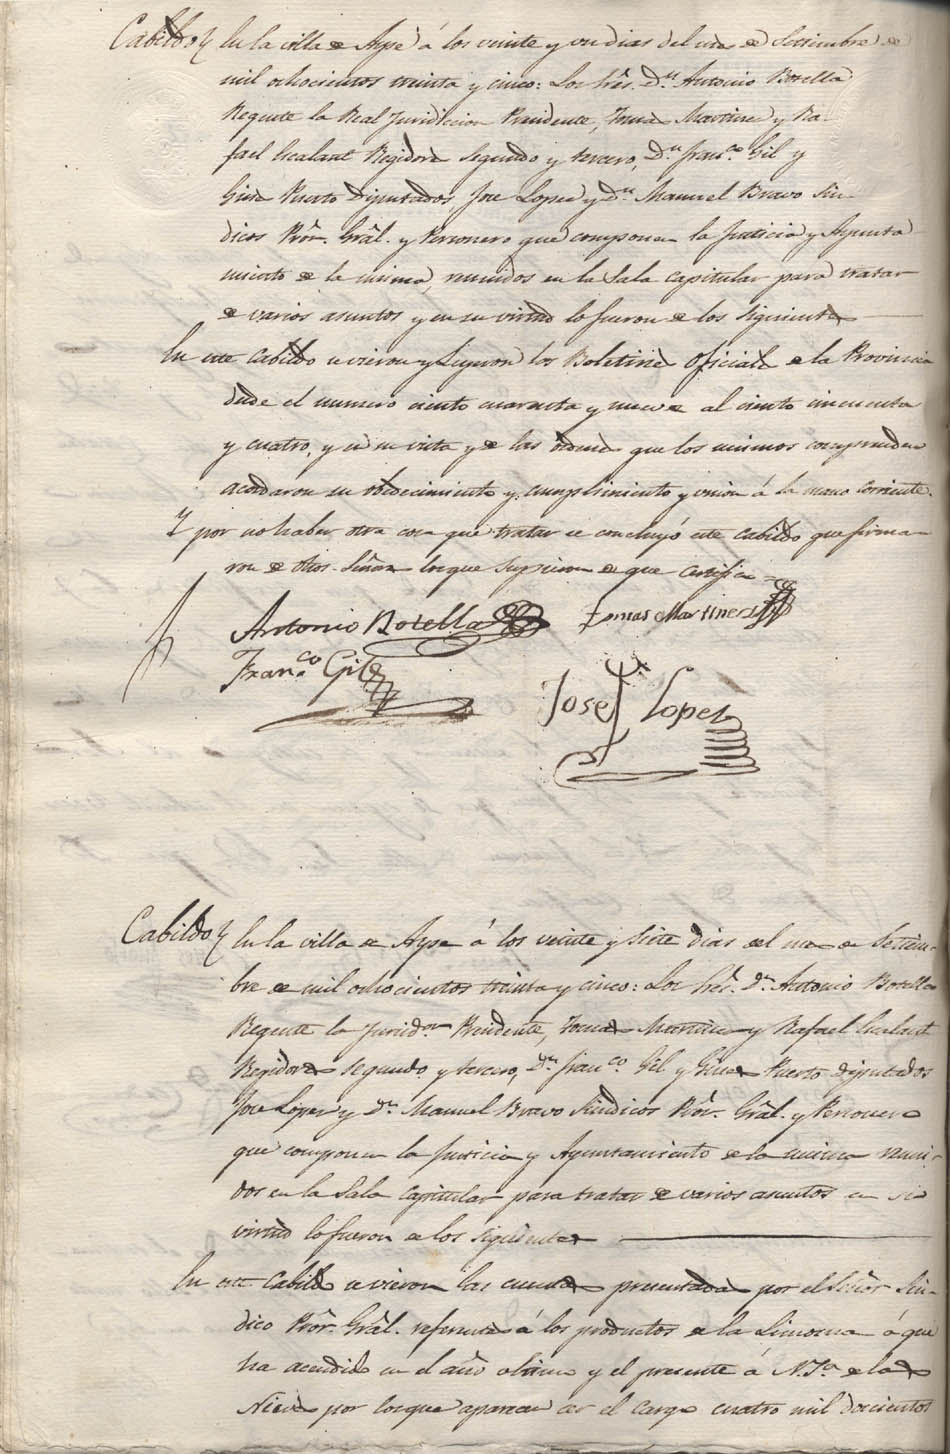 Cabildo En la villa de Aspe á los veinte y un dias del mes de Setiembre de
mil ochocientos treinta y cinco: Los Sres. Dn. Antonio Botella
Regente la Real Jurisdiccion Presidente, Tomas Martinez y Ra
fael Escalant Regidores segundo y tercero, Dn. Franco. Gil y
Gines Puerto Diputados, Jose Lopez y Dn. Manuel Bravo Sin
dicos Pror. Gral. y Personero que componen la Justicia y Ayunta
miento de la misma, reunidos en la Sala capitular para tratar
de varios asuntos y en su virtud lo fueron de los siguientes
En este Cabildo se vieron y Lelleron los Boletines oficiales de la Provincia
desde el numero ciento cuarenta y nueve al ciento cincuenta
y cuatro, y en su vista y de las ordenes que los mismos comprenden
acordaron su obedecimiento y cumplimiento y union á la mano corriente.
Y por no haber otra cosa que tratar se concluyó este Cabildo que firma
ron de dhos. Señores los que supieron de que certifico
Antonio Botella Tomas Martinez
Franco. Gil
Jose Lopez
Cabildo En la villa de Aspe á los veinte y siete dias del mes de Setiem
bre de mil ochocientos treinta y cinco: Los Sres. Dn. Antonio Botella
Regente la Jurisdon. Presidente, Tomas Martinez y Rafael Escalant
Regidores segundo y tercero, Dn. Franco. Gil y Gines Puerto diputados
Jose Lopez y Dn. Manuel Bravo Sindicos Pror. Gral. y Personero
que componen la Justicia y Ayuntamiento de la misma reuni
dos en la Sala Capitular para tratar de varios asuntos en su
virtud lo fueron de los siguientes
En este Cabildo se vieron las cuentas presentadas por el Señor Sin
dico Pror. Gral. referentes á los productos de la Limosna á que
ha acendido en el año ultimo y el presente á N. Sa. de las
Nieves por los que aparecen ser el cargo cuatro mil doscientos